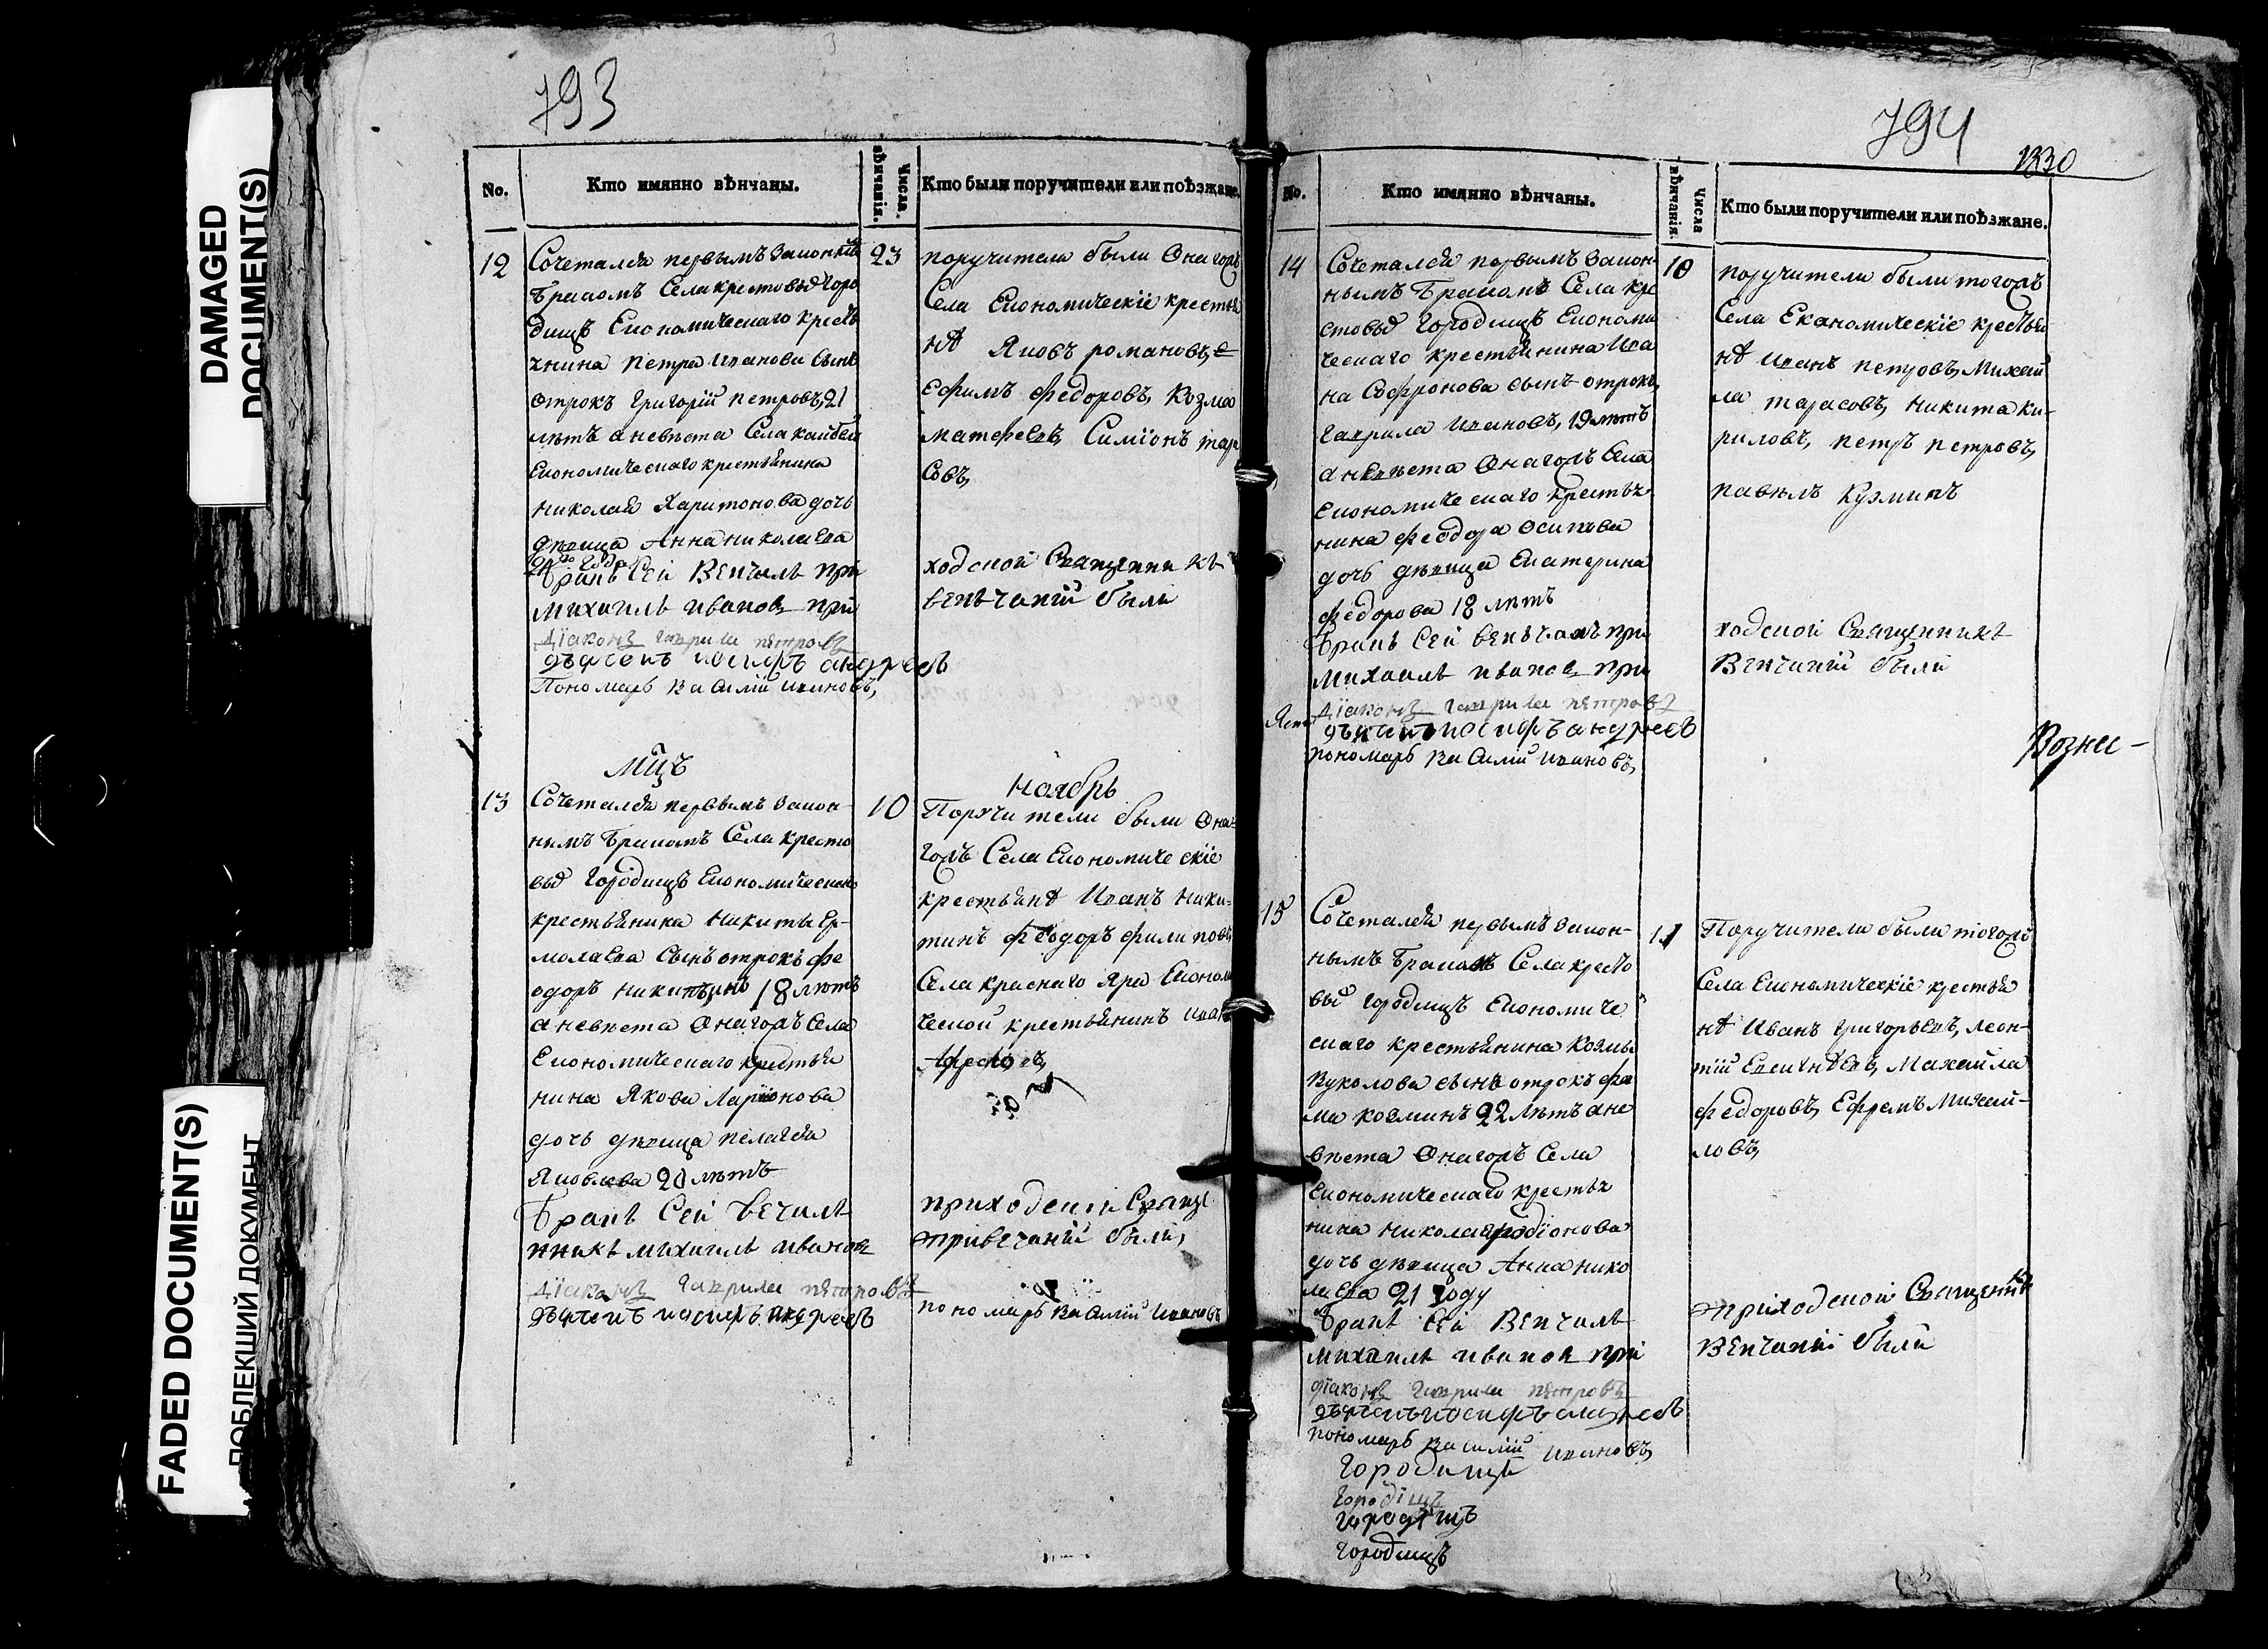 DAMAGED
DOCUMENT(S)
FADED DOCUMENT(S)
ПОБЛЕКШИЙ ДОКУМЕНТ
793
No.
Кто имянно вѣнчаны.
Числа вѣнчанія.
Кто были поручители или поѣзжане.
12
Сочетался первымъ законнымъ
бракомъ Села крестовыхъ горо
дищъ Економическаго крестья
нина Петра иванова Сынъ
отрокъ григорій петровъ, 21
лѣтъ а невѣста Села кайбел
Економическаго крестьянина
николая Харитонова дочь
дѣвица Анна николаева
бракъ Сей Венчалъ при
михаилъ иванов при
дїаконъ гаврила пѣтровъ
дьячекъ иосифъ андреевъ
Пономарь Василий ивановъ,
23
поручители были Онагожъ
Села Економическіе крестья
не Яковъ романовъ, е
Ефимъ федоровъ, Козма
матфеевъ, Симїонъ тара
совъ,
ходской Священникъ
венчаніи были
мцъ
ноябрь
13
Сочетался первымъ закон-
нымъ бракомъ Села кресто
выхъ городищъ Економическаго
крестьянина никиты Ер-
молаева Сынъ отрокъ фе
одоръ никитинъ 18 лѣтъ
а невѣста Онагожъ Села
Економическаго крестья
нина Якова Ларионова
дочь дѣвица пелагея
Яковлева 20 лѣтъ
бракъ Сей Вечалъ
нникъ михаилъ иванов
дїаконъ гаврила пѣтровъ
дьячекъ иосифъ андреевъ
10
Поручители были Она-
гожъ Села Економическіе
крестьяне Иванъ ники-
тинъ феодоръ филиповъ
Села краснаго Яра Економи
ческой крестьянинъ иван
приходской Свяще
при вечаніи были,
пономарь Василий ивановъ
794
1830
No.
Кто имянно вѣнчаны.
Числа вѣнчанія.
Кто были поручители или поѣзжане.
14
Сочетался первымъ закон-
нымъ бракомъ Села кре
стовыхъ городищъ Економи
ческаго крестьянина Ива
на Софронова сынъ отрокъ
гаврила ивановъ, 19 лѣтъ
а невѣста Онагожъ Села
Економическаго крестья-
нина феодора осипова
дочь дѣвица Екатерина
федорова 18 лѣтъ
бракъ Сей венчалъ при
михаилъ иванов при
дїаконъ гаврила пѣтровъ
дьячекъ иосифъ андреевъ
пономарь Василий ивановъ,
10
поручители были тогожъ
Села Економическіе крестья
не иванъ петровъ, Михай
ла тарасовъ, никита ки-
риловъ, петръ петровъ,
павелъ Кузминъ
ходской Священникъ
Венчаніи были
Вознес-
15
Сочетался первымъ закон-
нымъ бракомъ Села кресто
вый городищъ Економиче
скаго крестьянина Козмы
Вуколова сынъ отрокъ фа
ма козминъ 22 лѣтъ а не
вѣста Онагожъ Села
Економическаго крестья
нина николая родїонова
дочь дѣвица Анна нико
лаева 21 году
бракъ Сей Венчалъ
михаилъ иванов при
дїаконъ гаврила пѣтровъ
дьячекъ иосифъ андреевъ
пономарь василий ивановъ,
11
Поручители были тогожъ
Села Економическіе крестья
не Иванъ григорьевъ, леон-
тїй Евсигнѣевъ, Михайла
федоровъ, Ефремъ Михай-
ловъ,
приходской Священникъ
Венчаніи были
городищъ
городищъ
городищъ
городищъ